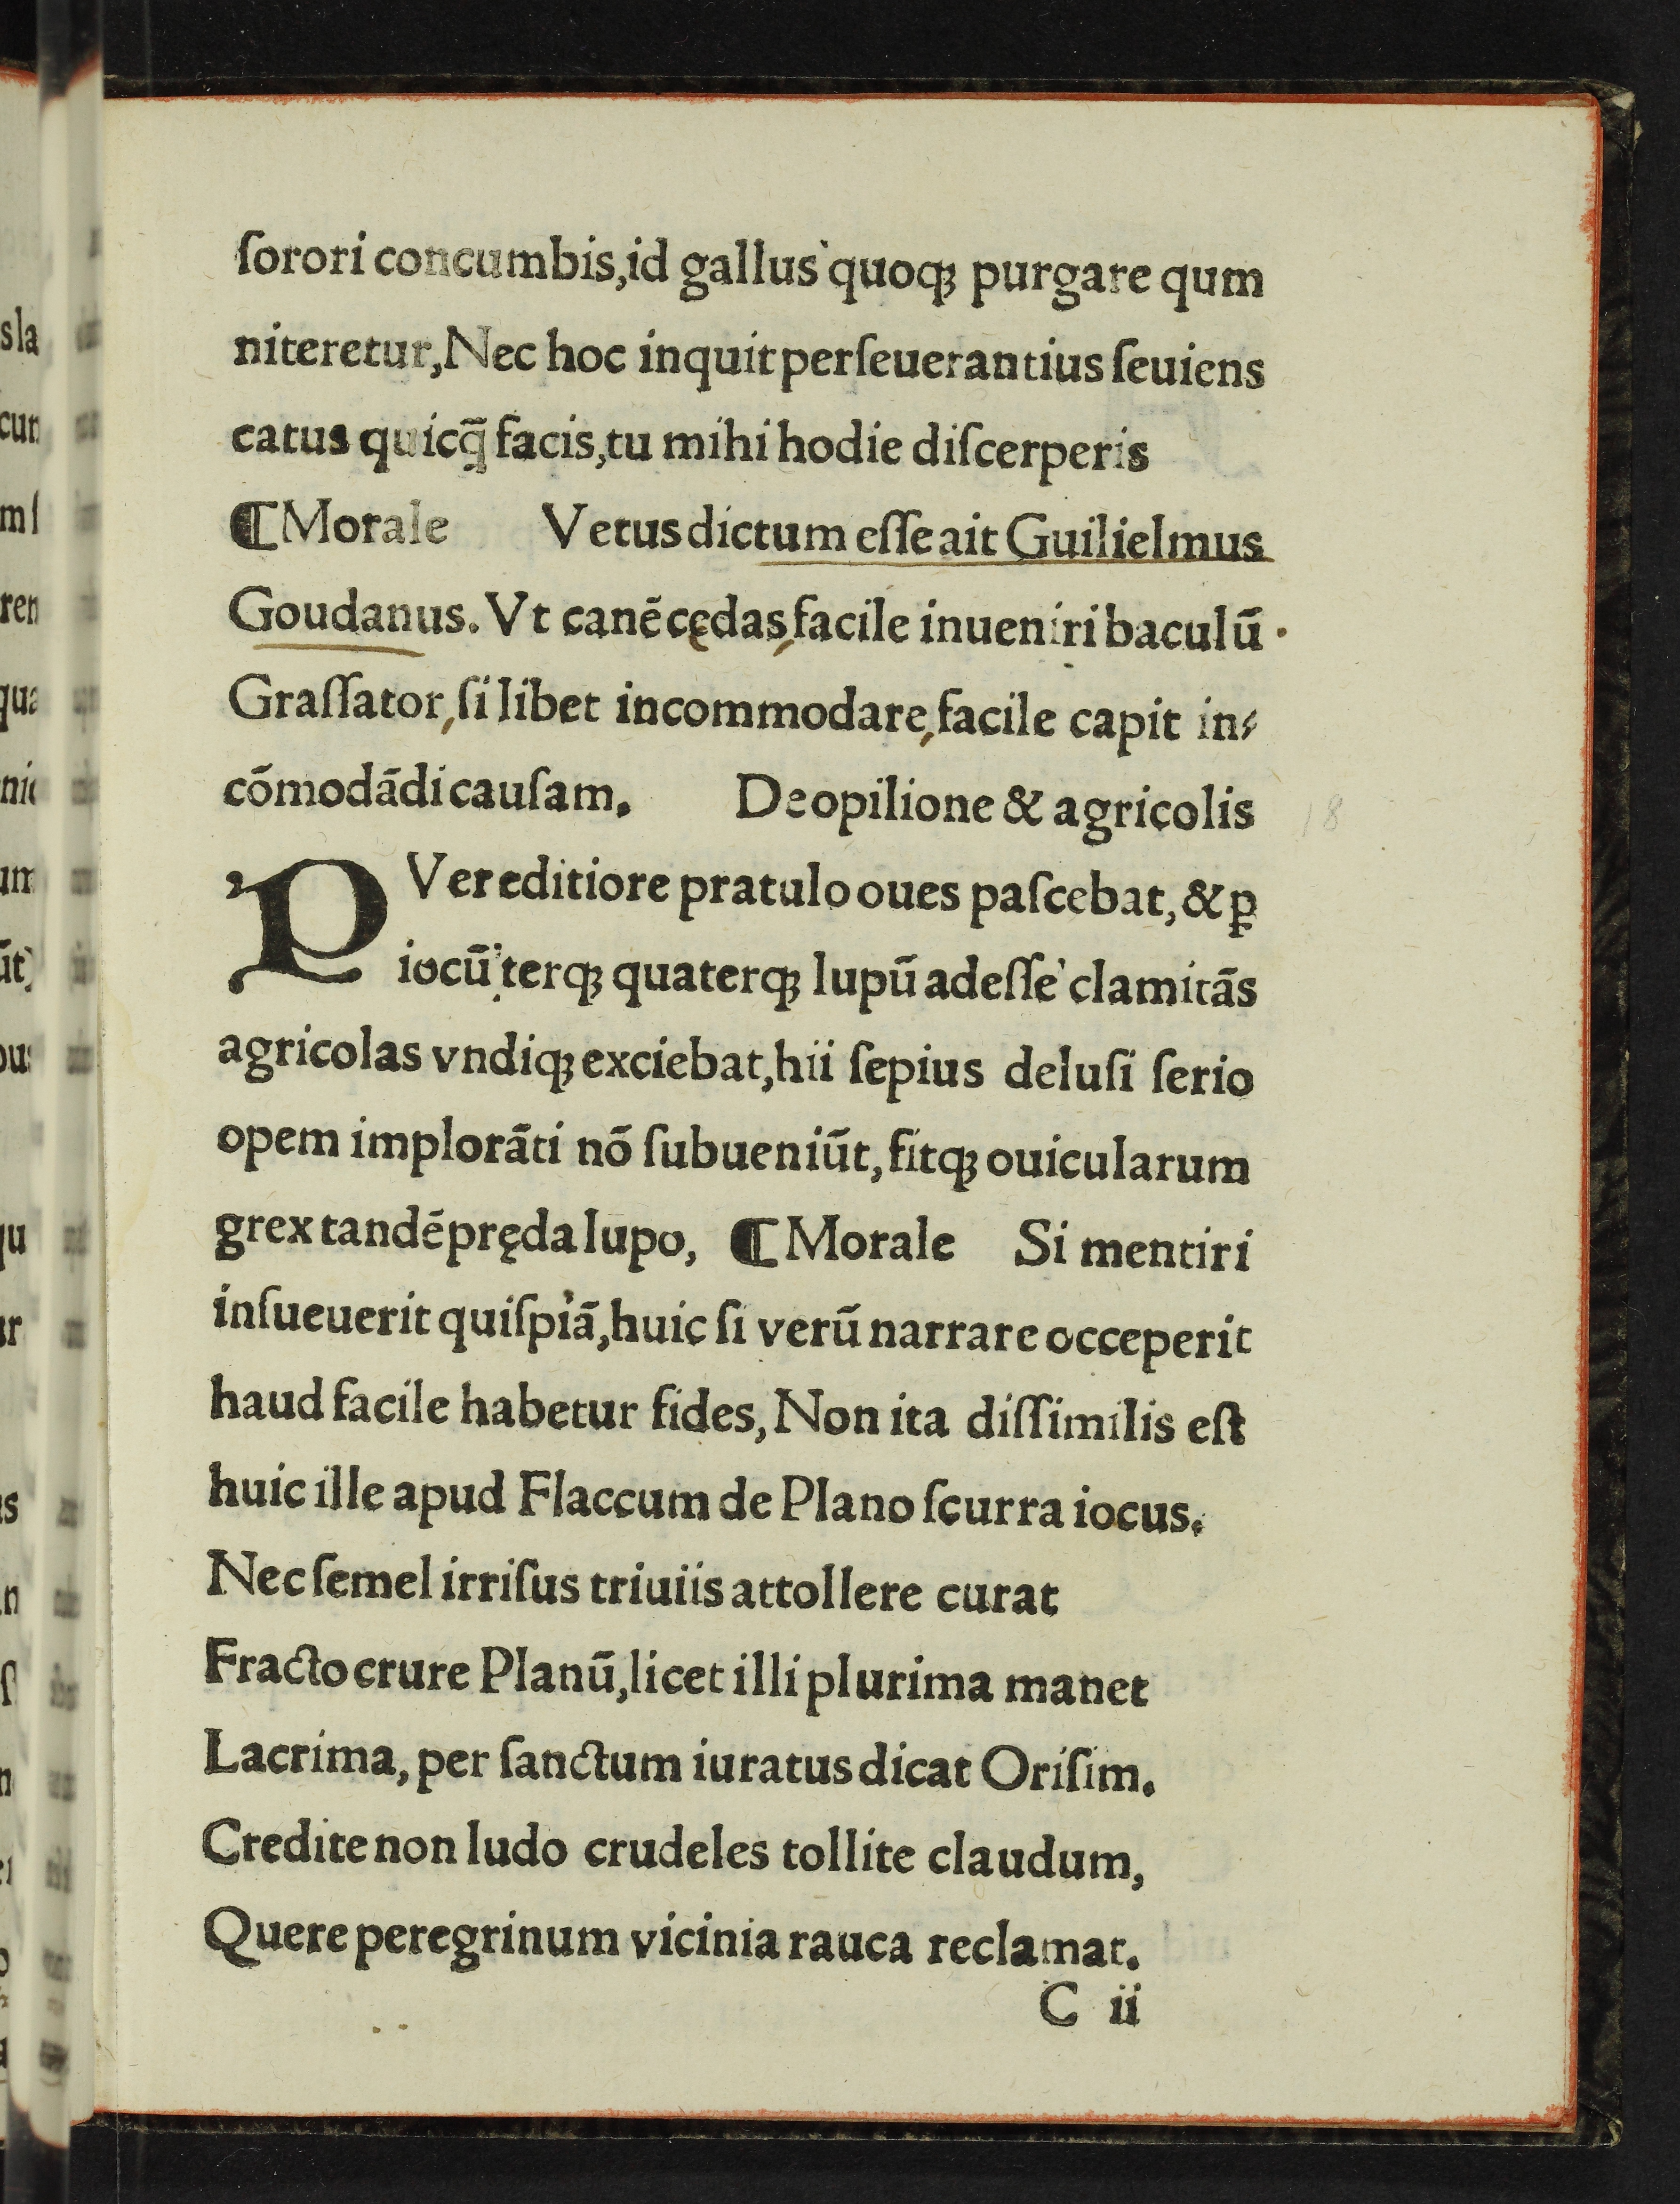 ſorori concumbis,id gallus quoqꝫ purgare qum
niteretur,Nec hoc inquit perſeuerantius ſeuiens
catus quicq̃ facis,tu mihi hodie diſcerperis
⁋Morale Vetus dictum eſſe ait Guilielmus
Goudanus. Vt canē cędas,facile inueniri baculū
Graſſator,ſi libet incommodare,facile capit in⸗
cōmodādi cauſam. De opilione & agricolis
18
PVer editiore pratulo oues paſcebat, & ꝑ
iocū terqꝫ quaterqꝫ lupū adeſſe clamitās
agricolas vndiqꝫ exciebat,hii ſepius deluſi ſerio
opem implorāti nō ſubueniūt, fitqꝫ ouicularum
grex tandē pręda lupo, ⁋Morale Si mentiri
inſueuerit quiſpiā,huic ſi verū narrare occeperit
haud facile habetur fides, Non ita diſſimilis eſt
huic ille apud Flaccum de Plano ſcurra iocus.
Nec ſemel irriſus triuiis attollere curat
Fracto crure Planū,licet illi plurima manet
Lacrima, per ſanctum iuratus dicat Oriſim.
Credite non ludo crudeles tollite claudum,
Quere peregrinum vicinia rauca reclamat.
C ii